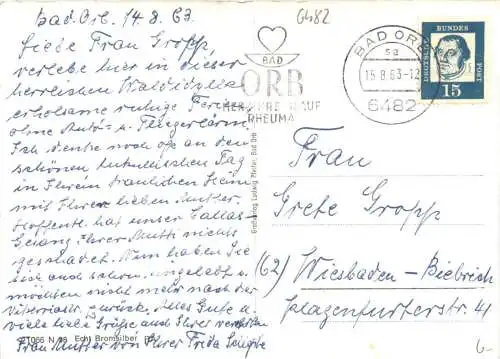 Bad-Orb. 14.8.63.
6482
Liebe Frau Gropp,
verlebe hier in dieser
herrlichen Waldidylle
erholsame ruhige Ferien
ohne Auto- u. Fliegerlärm.
Ich denke noch oft an den
schönen Tag
in Ihrem traulichen Heim
mit Ihrer lieben Mutter.
Hoffentl. hat unser Callas-
Gesang Ihrer Mutti nichts
geschadet. Nun haben Sie
sich auch schon eingelebt u.
möchten nicht mehr nach der
zurück. Alles Gute u.
viele liebe Grüße auch Ihrer verehrten
Frau Mutter von Ihrer Frida
21066 N 36 Echt Bromsilber
BAD
ORB
HERZ RHEUMA
BAD ORB
sa
15.8.63-12
6482
DEUTSCHE BUNDESPOST
15
Großverlag Ludwig Pfeifer, Bad Orb
Frau
Grete Gropp
(62) Wiesbaden-Biebrich
41
6-